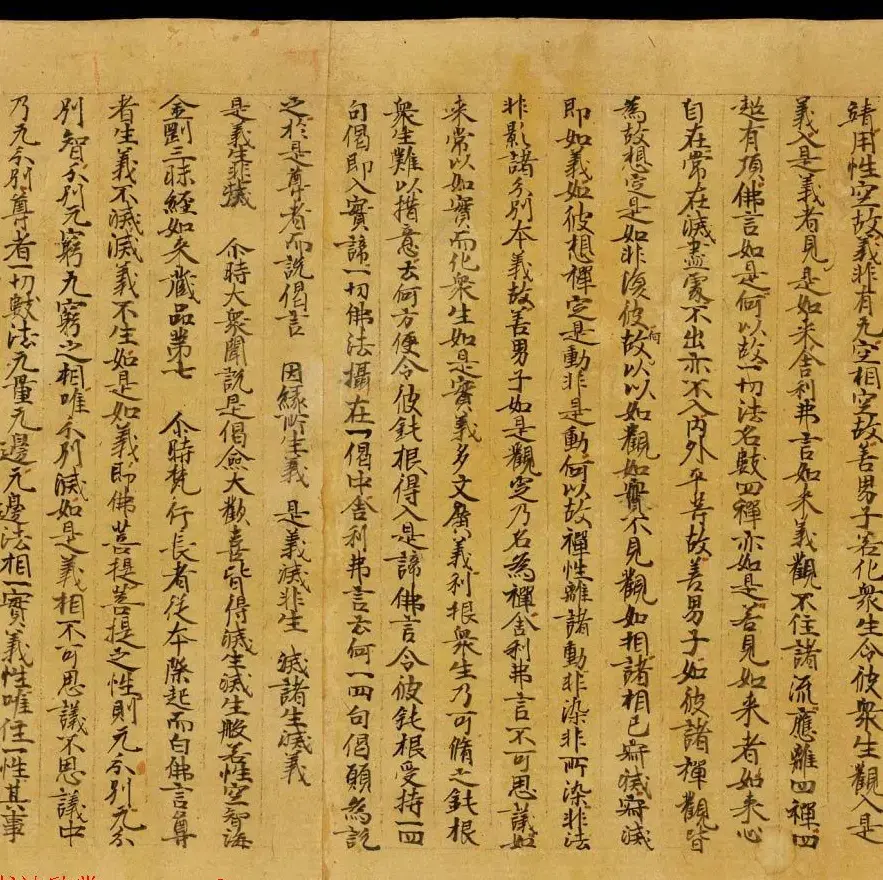 諸用性空故義非有无空相空故善男子若化衆生令彼衆生觀入是
義入是義者見是如来舍利弗言如来義觀不住諸流應離四禪四
超有頂佛言如是何以故一切法名數四禪亦如是若見如来者如来心
自在常在滅盡處不出亦不入内外平等故善男子如彼諸禪觀皆
為故想空是如非復彼何故以以如觀如實不見觀如相諸相已寂滅寂滅
即如義如彼想禪定是動非是動何以故禪性離諸動非染非所染非法
非影諸分別本義故善男子如是觀空乃名為禪舍利弗言不可思議如
来常以如實而化衆生如是實義多文廣義利根衆生乃可脩之鈍根
衆生難以措意云何方便令彼鈍根得入是諦佛言令彼鈍根受持一四
句偈即入實諦一切佛法攝在一偈中舍利弗言云何一四句偈願為説
之於是尊者而説偈言　因縁所生義　是義滅非生　滅諸生滅義
是義生非滅　尒時大衆聞説是偈僉大歡喜皆得滅生滅生般若性空智海
金剛三昧經如来藏品第七　尒時梵行長者従本際起而白佛言尊
者生義不滅滅義不生如是如義即佛菩提菩提之性則无分別无分
別智分別无窮无窮之相唯分別滅如是義相不可思議不思議中
乃无分別尊者一切數法无量无邊无邊法相一實義性唯住一性其事